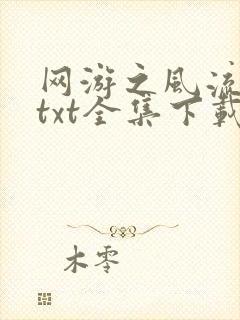 网游之风流
txt全集下载
木零